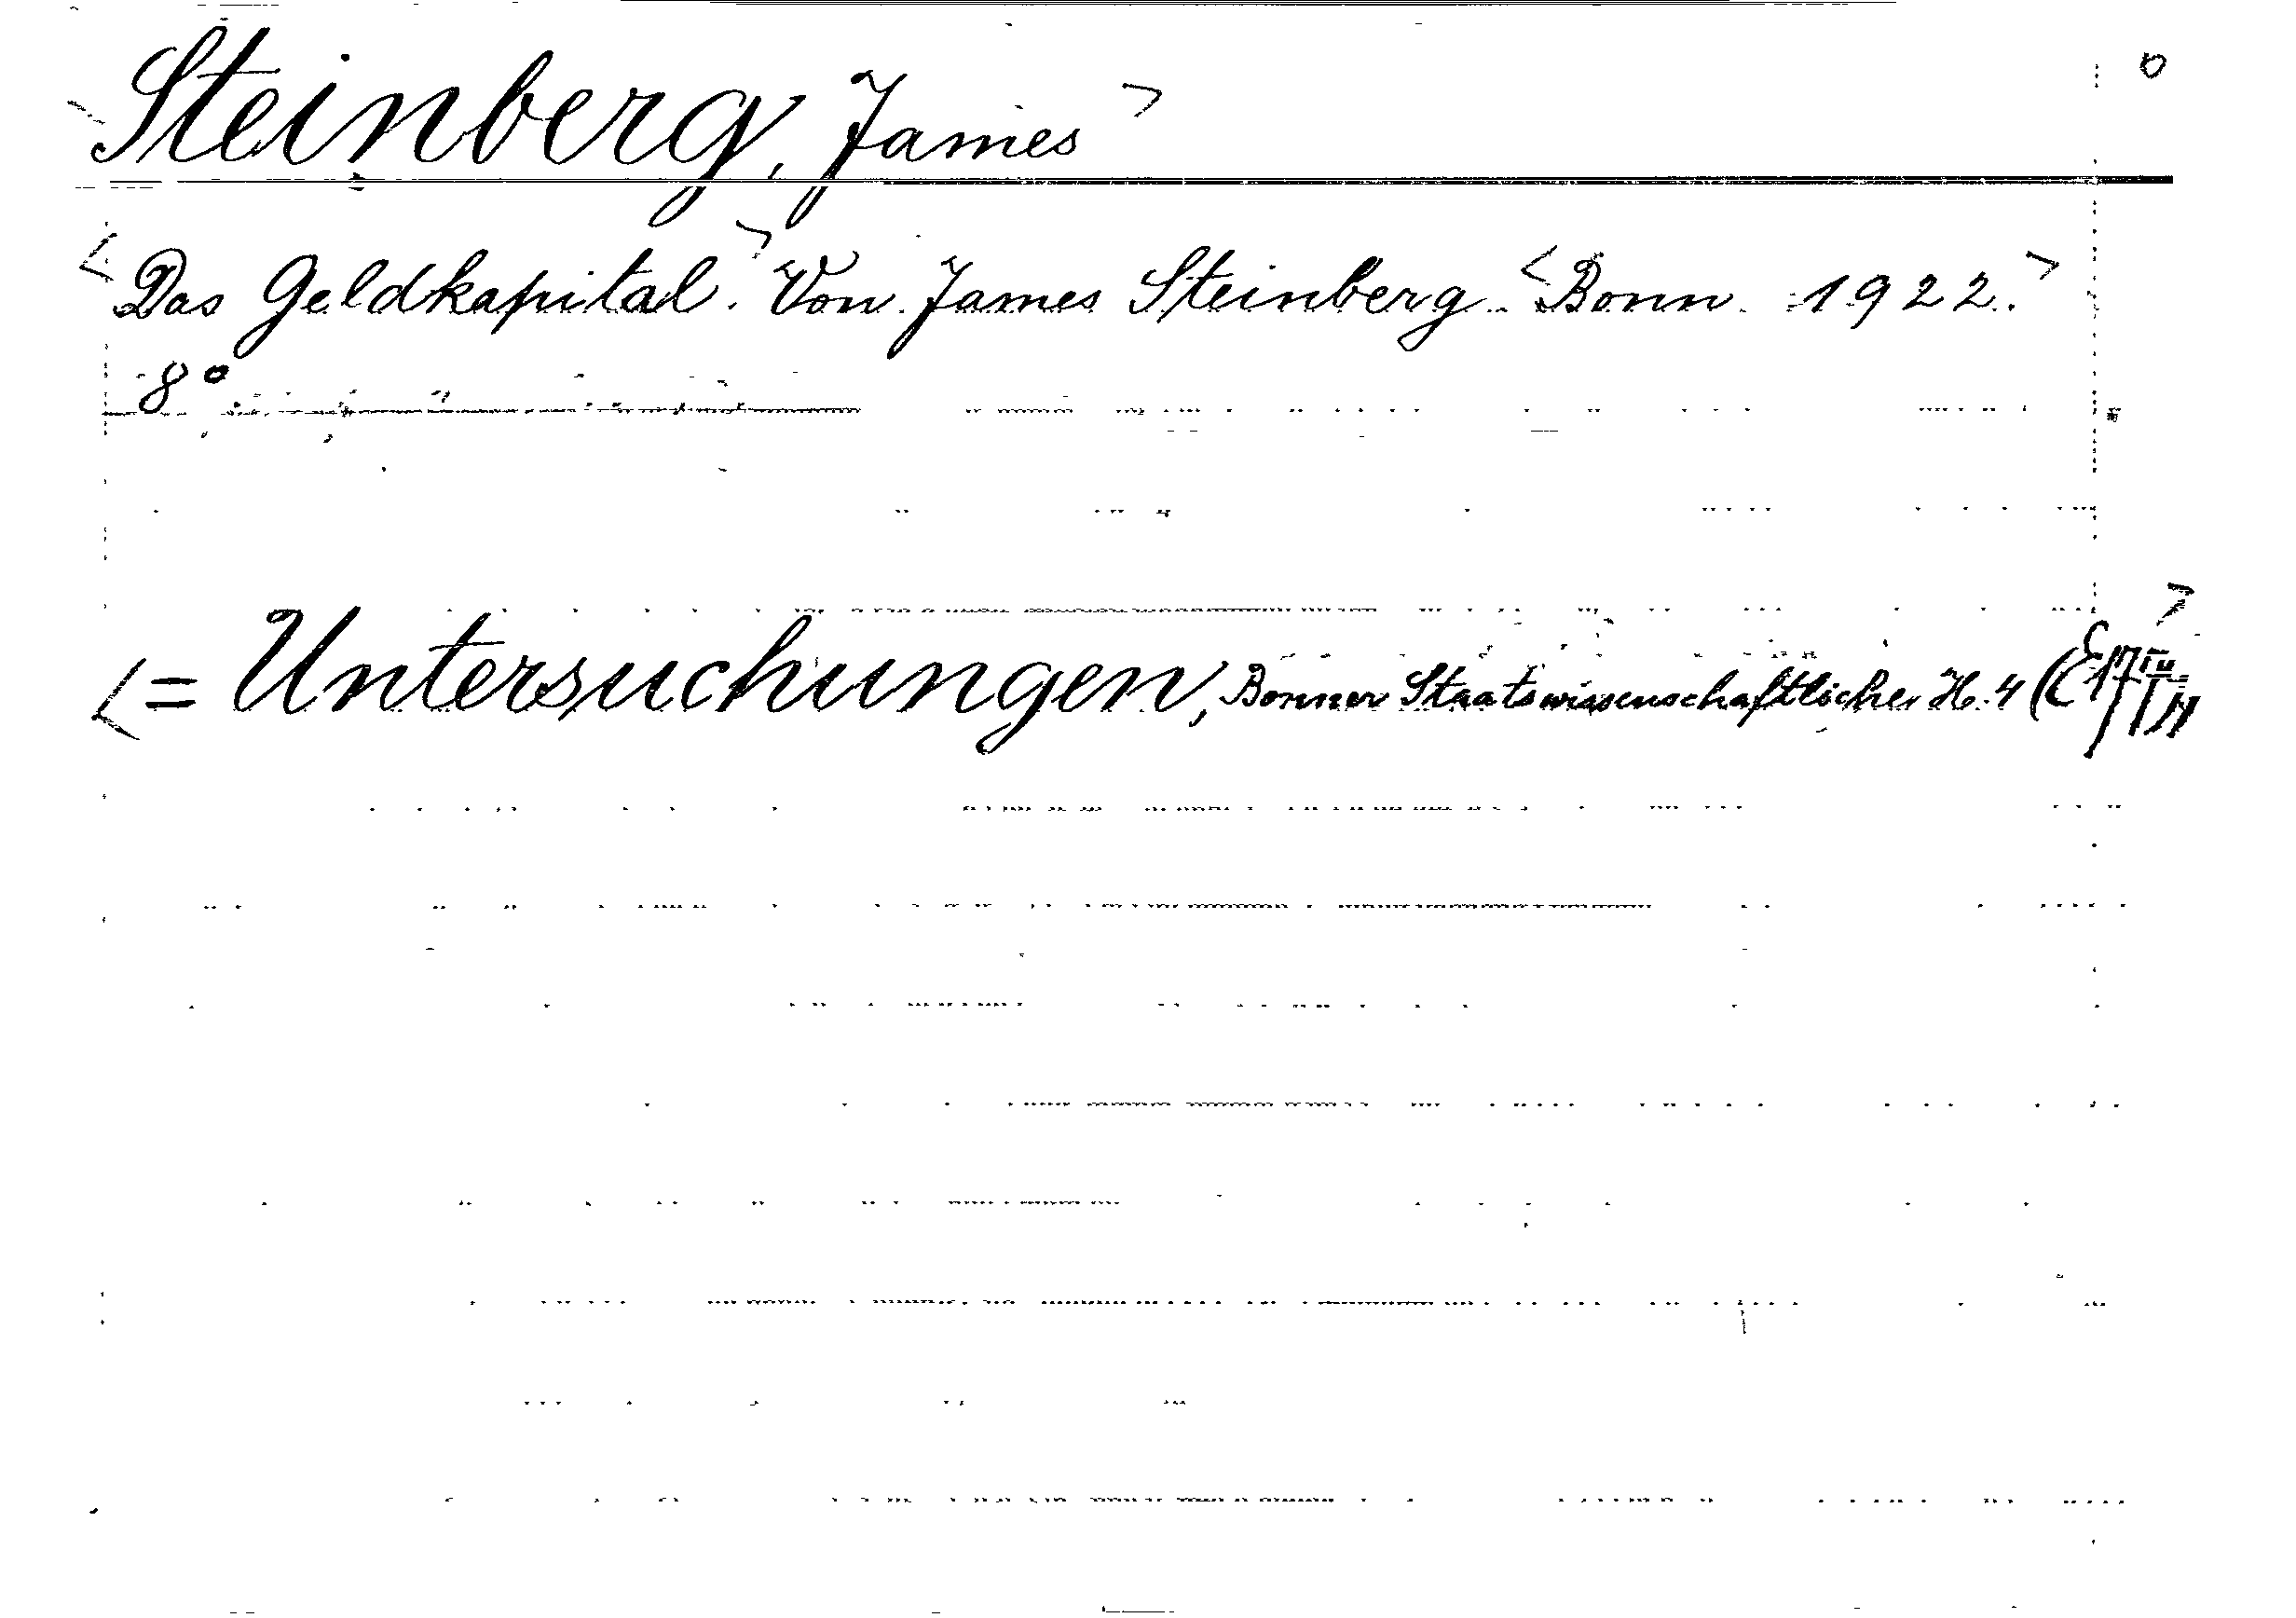 Steinberg, James > o
<Das Geldkapital.> Von James Steinberg. <Bonn. 1922.>
8°
<= Untersuchungen, Bonner Staatswissenschaftliche. H. 4